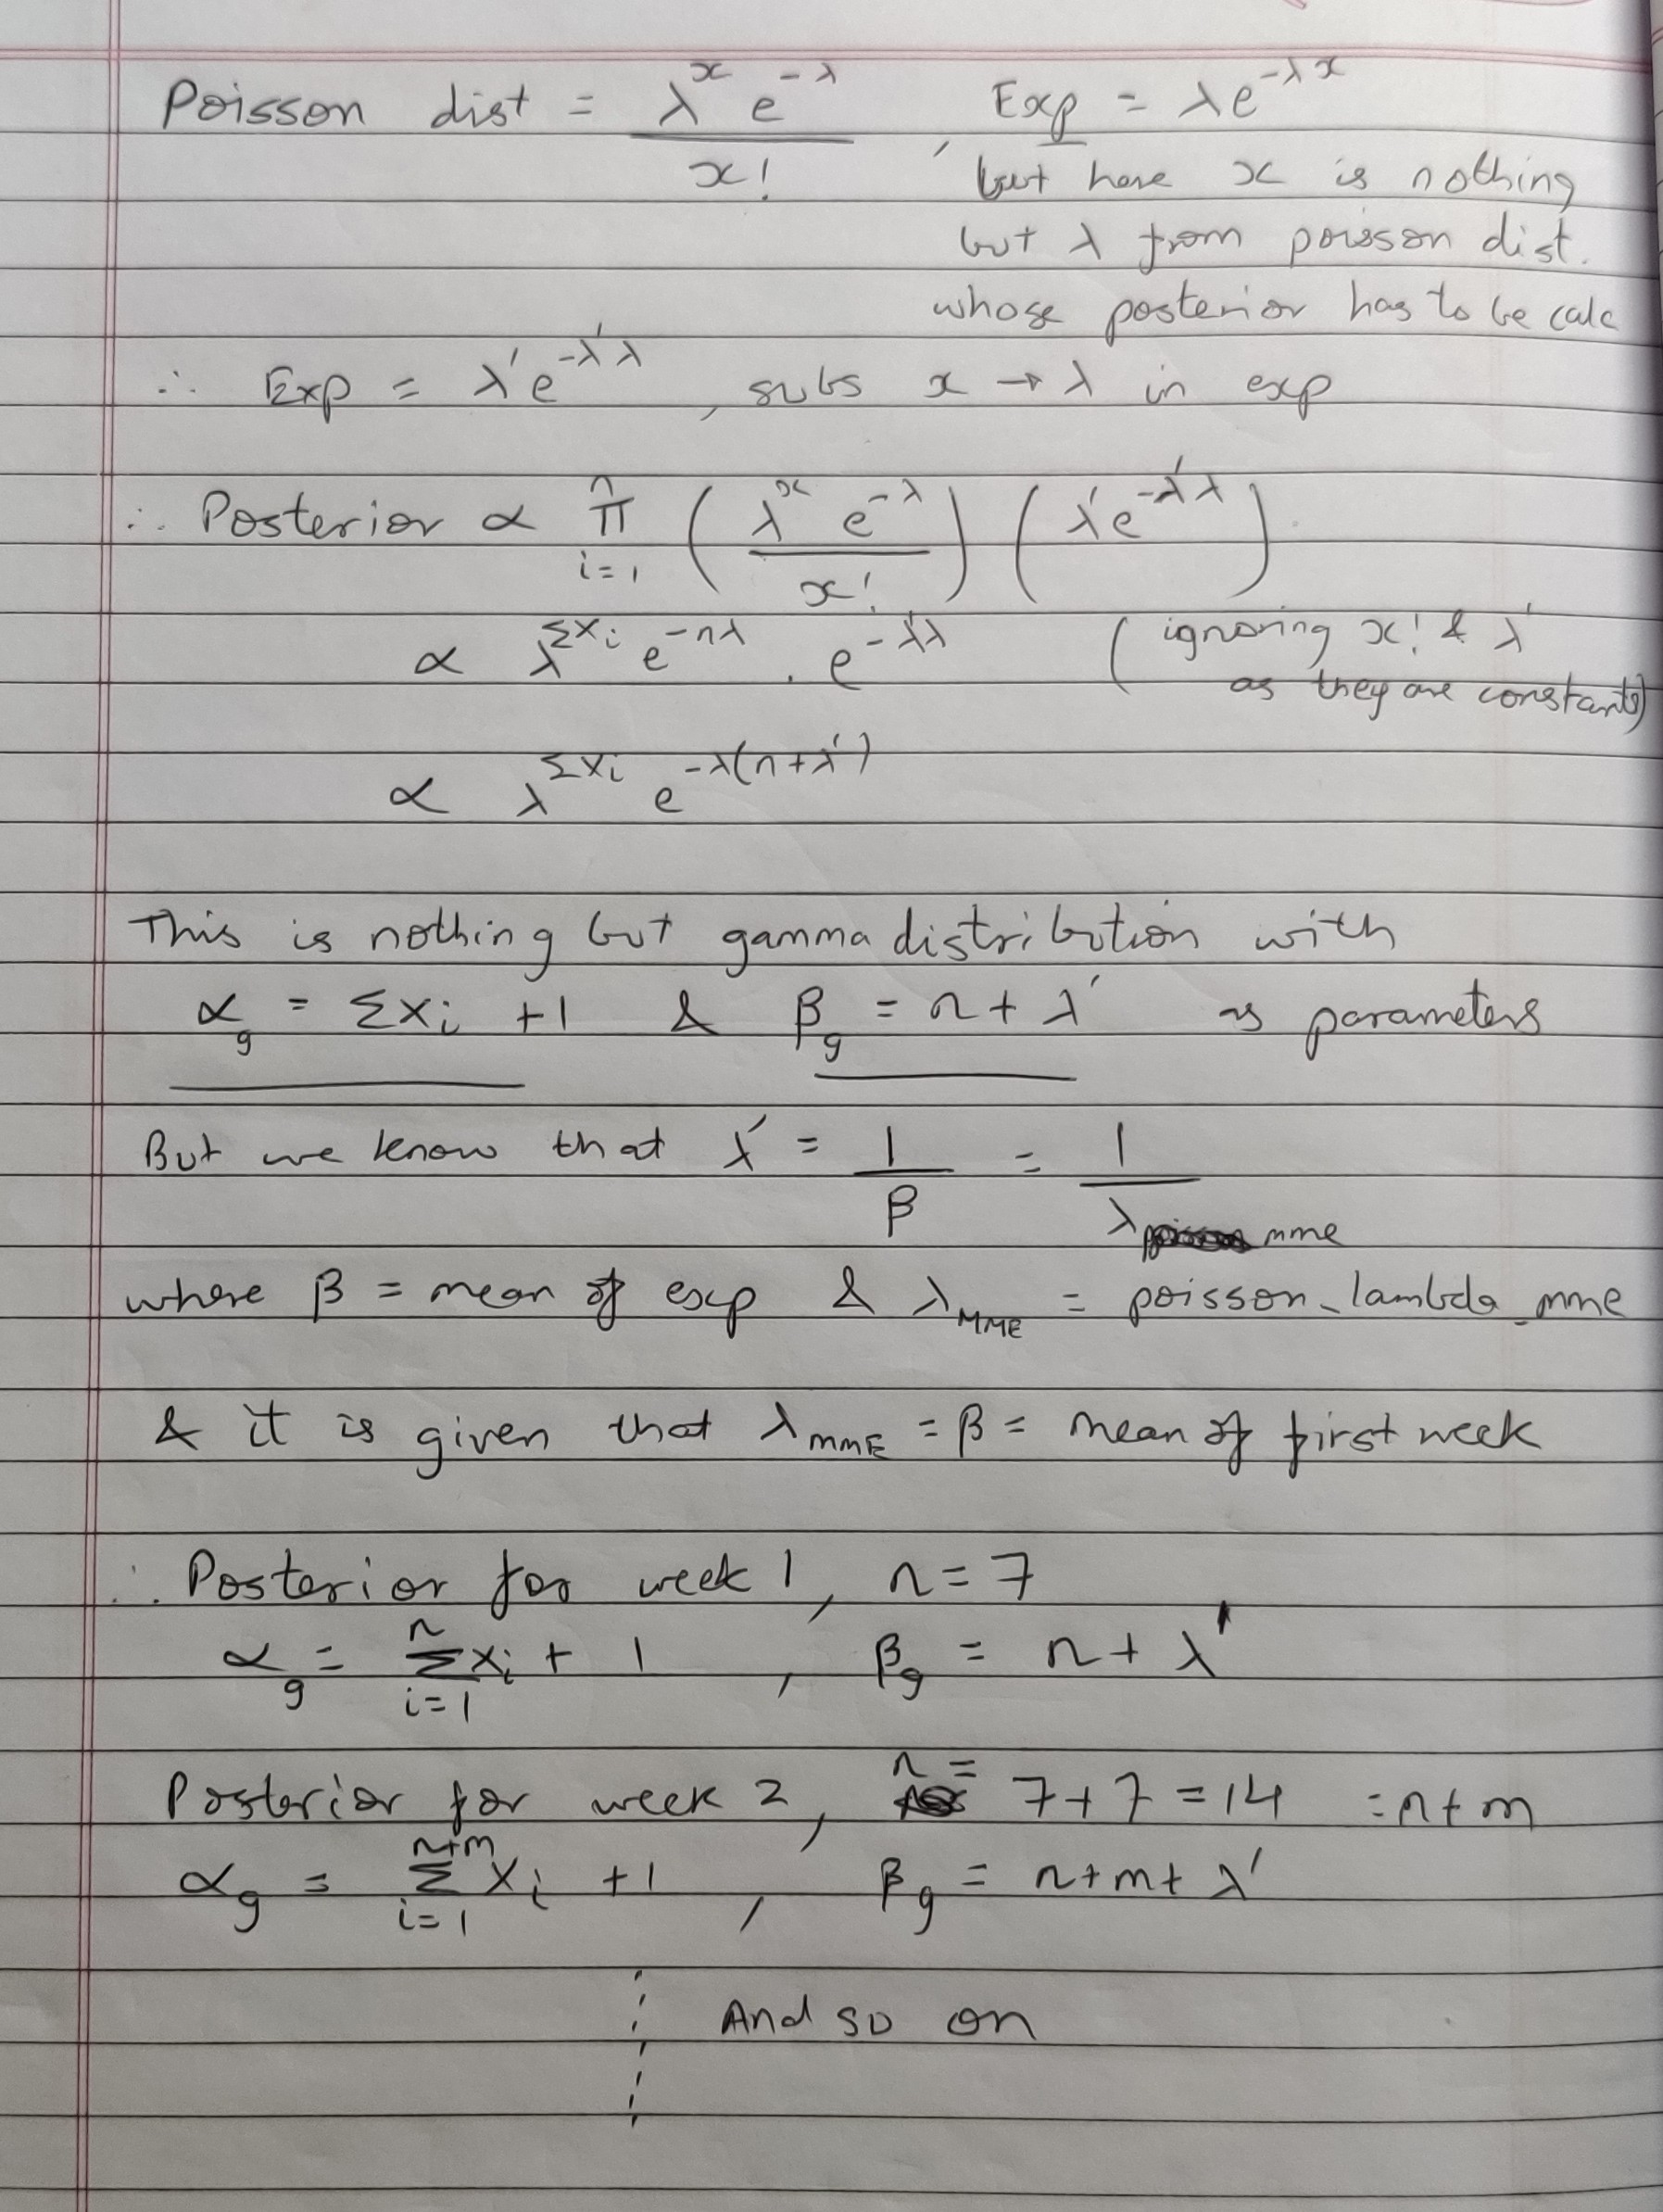 Poisson dist = λ^x e^-λ / x! , Exp = λe^-λx
but here x is nothing
but λ from poisson dist.
whose posterior has to be calc
∴ Exp = λ'e^-λ'λ , subs x → λ in exp
∴ Posterior ∝ n π i=1 ( λ^x e^-λ / x! ) ( λ'e^-λ'λ )
∝ λ^Σxi e^-nλ . e^-λ'λ ( ignoring x! & λ'
as they are constants)
∝ λ^Σxi e^-λ(n+λ')
This is nothing but gamma distribution with
α_g = Σxi +1 & β_g = n + λ' as parameters
But we know that λ' = 1/β = 1/λ_mme
where β = mean of exp & λ_MME = poisson_lambda_mme
& it is given that λ_MME = β = mean of first week
∴ Posterior for week 1, n = 7
α_g = n Σ i=1 xi + 1 , β_g = n + λ'
Posterior for week 2, n = 7+7 = 14 = n+m
α_g = n+m Σ i=1 Xi +1 , β_g = n+m+ λ'
And so on